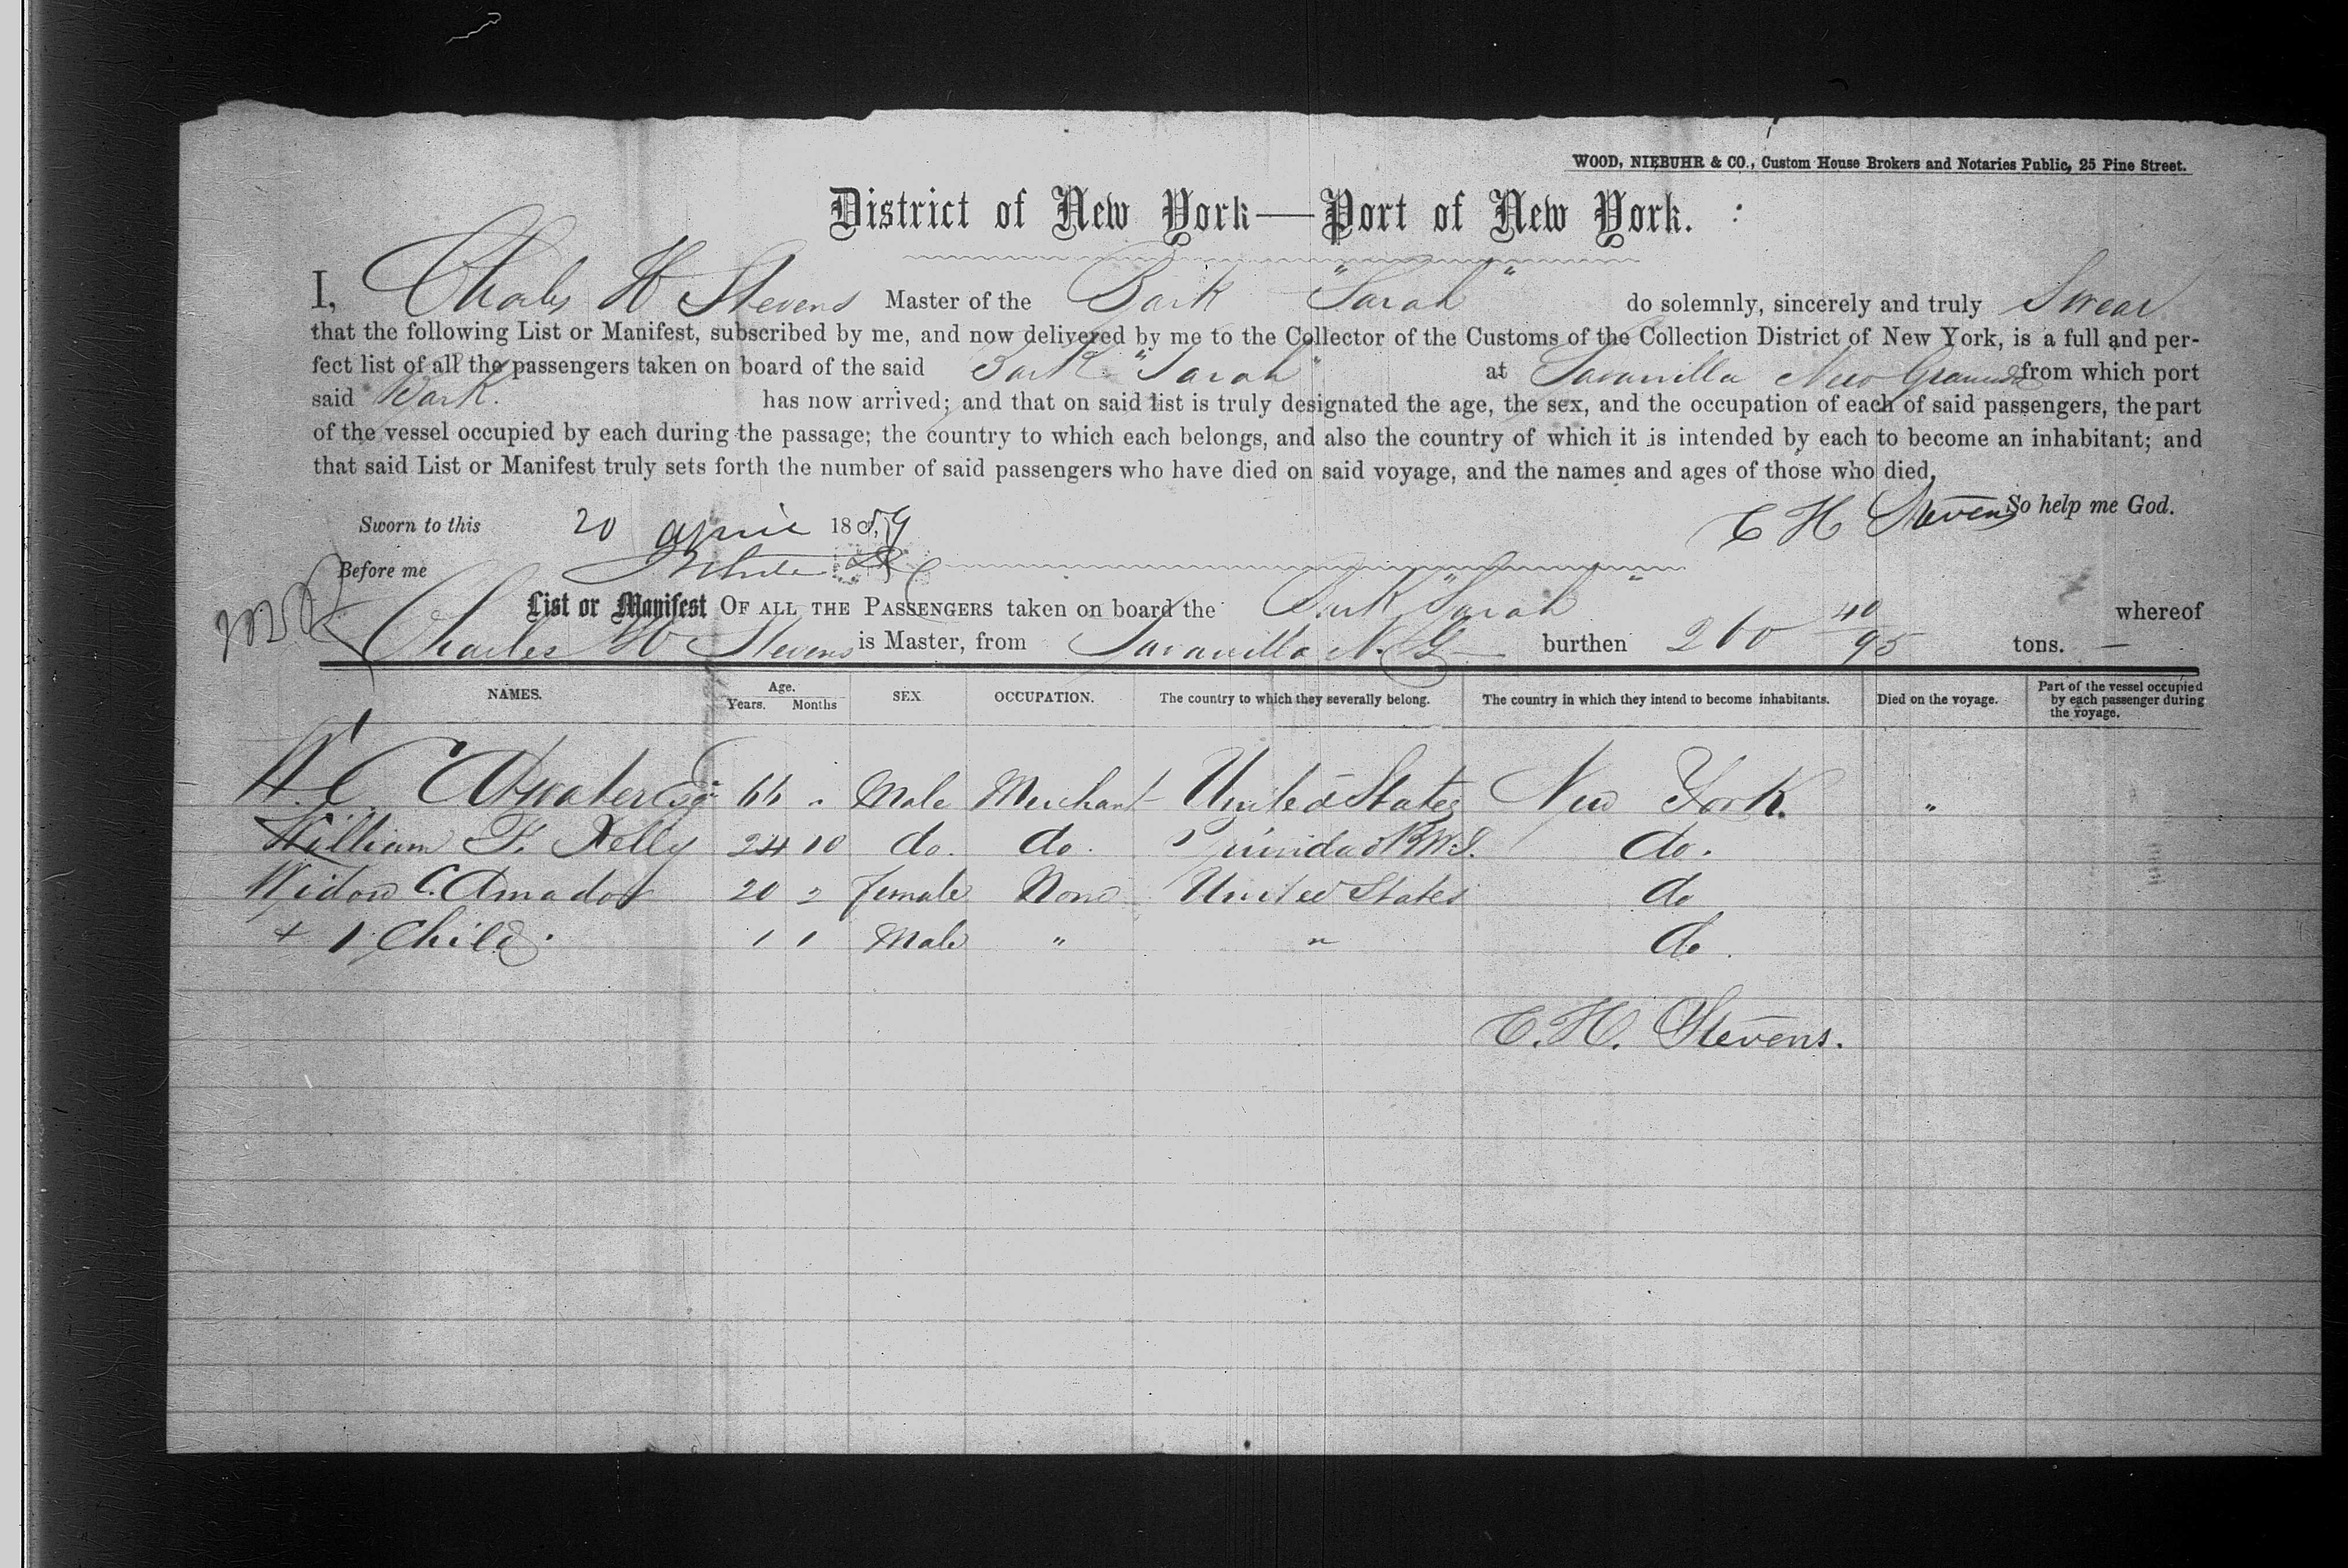 WOOD, NIEBUHR & CO., Custom House Brokers and Notaries Public, 25 Pine Street.
District of New York—Port of New York.
I, Charles H Stevens Master of the Bark "Sarah" do solemnly, sincerely and truly Swear
that the following List or Manifest, subscribed by me, and now delivered by me to the Collector of the Customs of the Collection District of New York, is a full and per-
fect list of all the passengers taken on board of the said Bark "Sarah" at Savanilla New Granada from which port
said Bark. has now arrived; and that on said list is truly designated the age, the sex, and the occupation of each of said passengers, the part
of the vessel occupied by each during the passage; the country to which each belongs, and also the country of which it is intended by each to become an inhabitant; and
that said List or Manifest truly sets forth the number of said passengers who have died on said voyage, and the names and ages of those who died,
C H Stevens So help me God.
Sworn to this 20 April 1859
Before me
List or Manifest OF ALL THE PASSENGERS taken on board the Bark "Sarah" whereof
Charles H Stevens is Master, from Savanilla N. G— burthen 260 40/95 tons. —
NAMES. Age. Years. Months SEX OCCUPATION. The country to which they severally belong. The country in which they intend to become inhabitants. Died on the voyage. Part of the vessel occupied by each passenger during the voyage.
C Atwater Esqr 66 " Male Merchant United States New York. "
William F. Kelly 24 10 do. do. Trinidad B.W.I. do.
Widow C. Amador 20 2 female None United States do
+ 1 Child. 1 1 Male " " do.
C. H. Stevens.